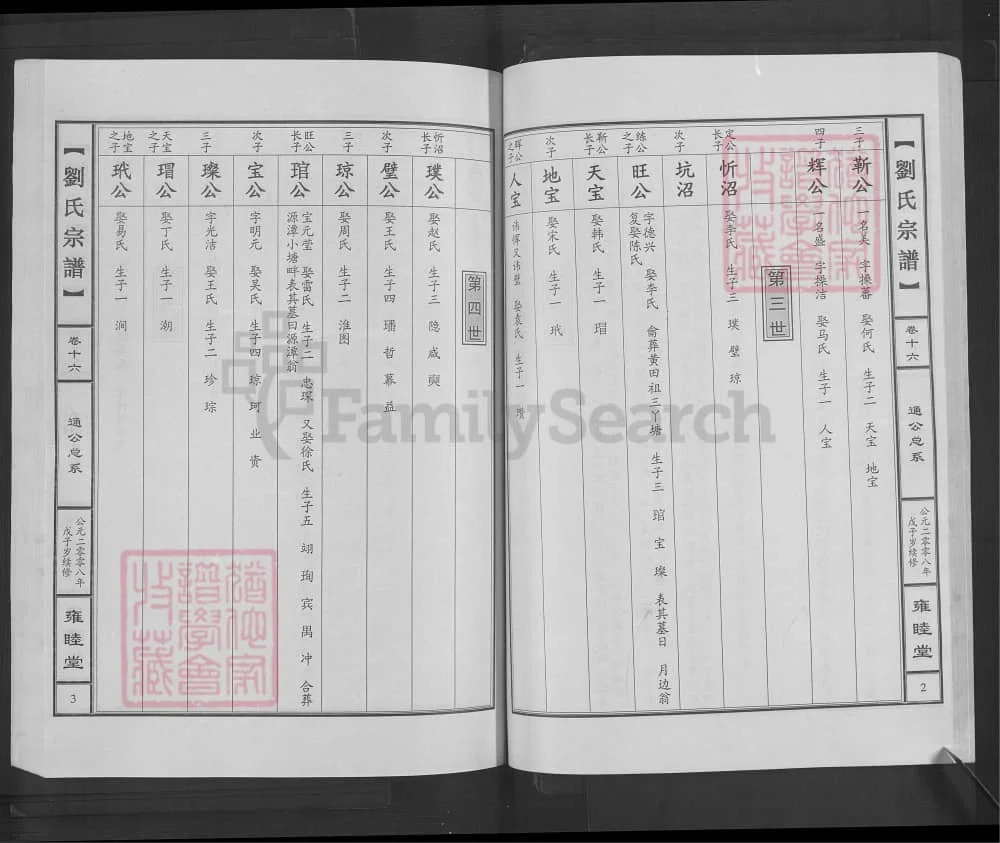 【劉氏宗譜】
卷十六
通公总系
公元二零零八年
戊子岁续修
雍睦堂
2
三子 靳公 一名美 字操蕃 娶何氏 生子二 天宝 地宝
四子 辉公 一名盛 字操洁 娶马氏 生子一 人宝
第三世
定公长子 忻沼 娶李氏 生子三 璞 壁 琼
次子 坑沼
练公之子 旺公 字德兴 娶李氏 侖葬黄田祖三丫塘 生子三 琯 宝 璨 表其墓曰 月边翁
复娶陈氏
靳公长子 天宝 娶韩氏 生子一 瑁
次子 地宝 娶宋氏 生子一 玳
晖公之子 人宝 讳挥又讳璧 娶袁氏 生子一 瓒
第四世
忻沼长子 璞公 娶赵氏 生子三 隐 咸 奭
次子 壁公 娶王氏 生子四 璠 哲 幕 益
三子 琼公 娶周氏 生子二 淮 图
旺公长子 琯公 宝元莹 娶雷氏 生子二 忠 琛 又娶徐氏 生子五 翊 珣 宾 禺 冲 合葬
源潭小塘畔表其墓曰源潭翁
次子 宝公 字明元 娶吴氏 生子四 琼 珂 业 贵
三子 璨公 字光洁 娶王氏 生子二 珍 琮
天宝之子 瑁公 娶丁氏 生子一 潮
地宝之子 玳公 娶易氏 生子一 涧
【劉氏宗譜】
卷十六
通公总系
公元二零零八年
戊子岁续修
雍睦堂
3
FamilySearch